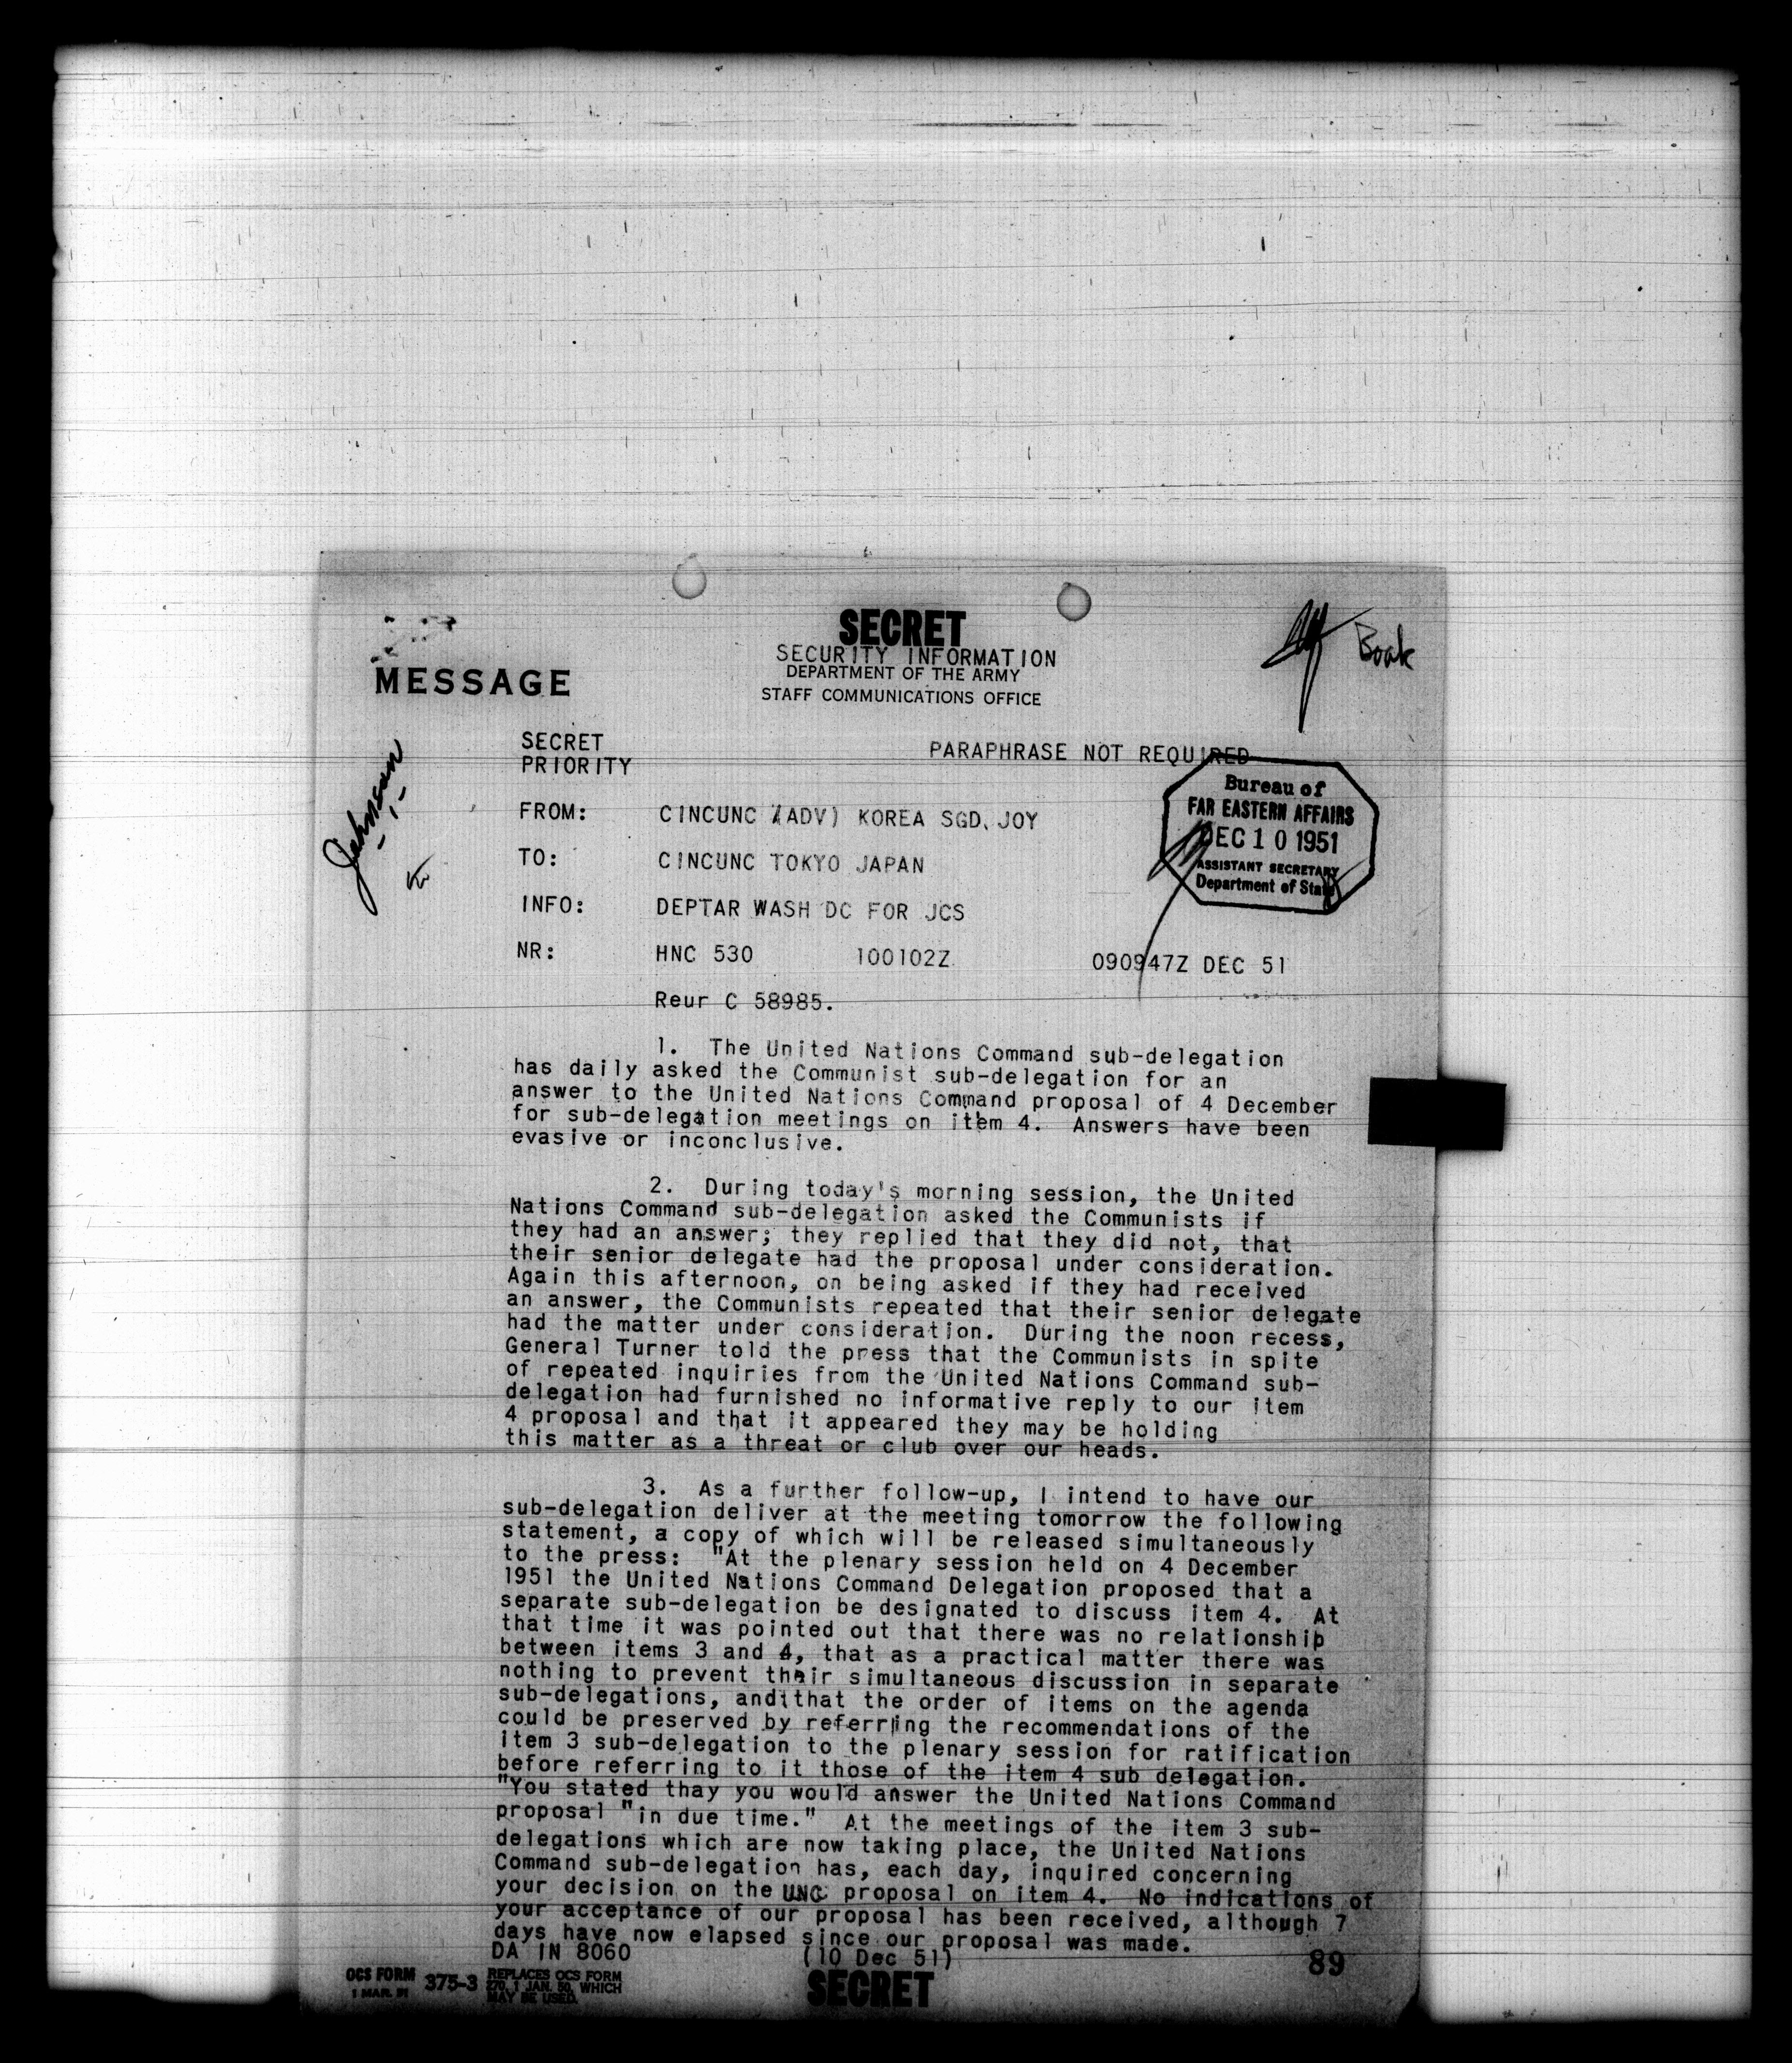 SECRET
SECURITY INFORMATION
DEPARTMENT OF THE ARMY
STAFF COMMUNICATIONS OFFICE
MESSAGE
Book
Johnson
SECRET
PRIORITY
PARAPHRASE NOT REQUIRED
Bureau of
FAR EASTERN AFFAIRS
DEC 10 1951
ASSISTANT SECRETARY
Department of State
FROM: CINCUNC (ADV) KOREA SGD, JOY
TO: CINCUNC TOKYO JAPAN
INFO: DEPTAR WASH DC FOR JCS
NR: HNC 530 100102Z 090947Z DEC 51
Reur C 58985.
1. The United Nations Command sub-delegation
has daily asked the Communist sub-delegation for an
answer to the United Nations Command proposal of 4 December
for sub-delegation meetings on item 4. Answers have been
evasive or inconclusive.
2. During today's morning session, the United
Nations Command sub-delegation asked the Communists if
they had an answer; they replied that they did not, that
their senior delegate had the proposal under consideration.
Again this afternoon, on being asked if they had received
an answer, the Communists repeated that their senior delegate
had the matter under consideration. During the noon recess,
General Turner told the press that the Communists in spite
of repeated inquiries from the United Nations Command sub-
delegation had furnished no informative reply to our item
4 proposal and that it appeared they may be holding
this matter as a threat or club over our heads.
3. As a further follow-up, I intend to have our
sub-delegation deliver at the meeting tomorrow the following
statement, a copy of which will be released simultaneously
to the press: "At the plenary session held on 4 December
1951 the United Nations Command Delegation proposed that a
separate sub-delegation be designated to discuss item 4. At
that time it was pointed out that there was no relationship
between items 3 and 4, that as a practical matter there was
nothing to prevent their simultaneous discussion in separate
sub-delegations, andithat the order of items on the agenda
could be preserved by referring the recommendations of the
item 3 sub-delegation to the plenary session for ratification
before referring to it those of the item 4 sub delegation.
"You stated thay you would answer the United Nations Command
proposal "in due time." At the meetings of the item 3 sub-
delegations which are now taking place, the United Nations
Command sub-delegation has, each day, inquired concerning
your decision on the UNC proposal on item 4. No indications of
your acceptance of our proposal has been received, although 7
days have now elapsed since our proposal was made.
DA IN 8060 (10 Dec 51) 89
OCS FORM 375-3 REPLACES OCS FORM
1 MAR. 51 270, 1 JAN. 50, WHICH
MAY BE USED.
SECRET